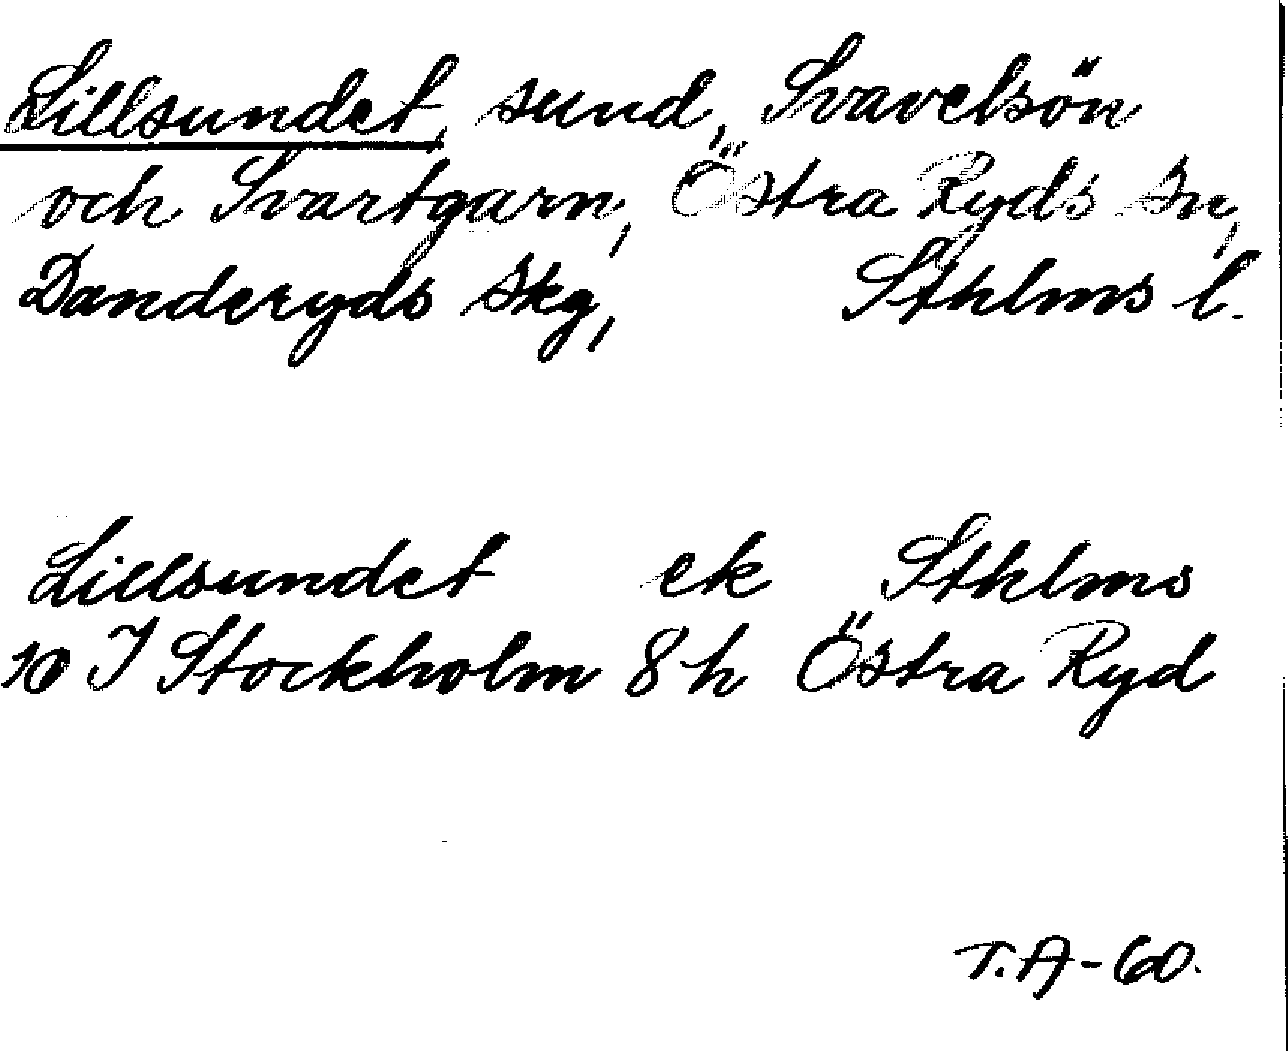 Lillsundet, sund, Svavelsön
och Svartgarn, Östra Ryds sn,
Danderyds skg, Sthlms l.
Lillsundet ek Sthlms
10 I Stockholm 8 h Östra Ryd
T.A-60.